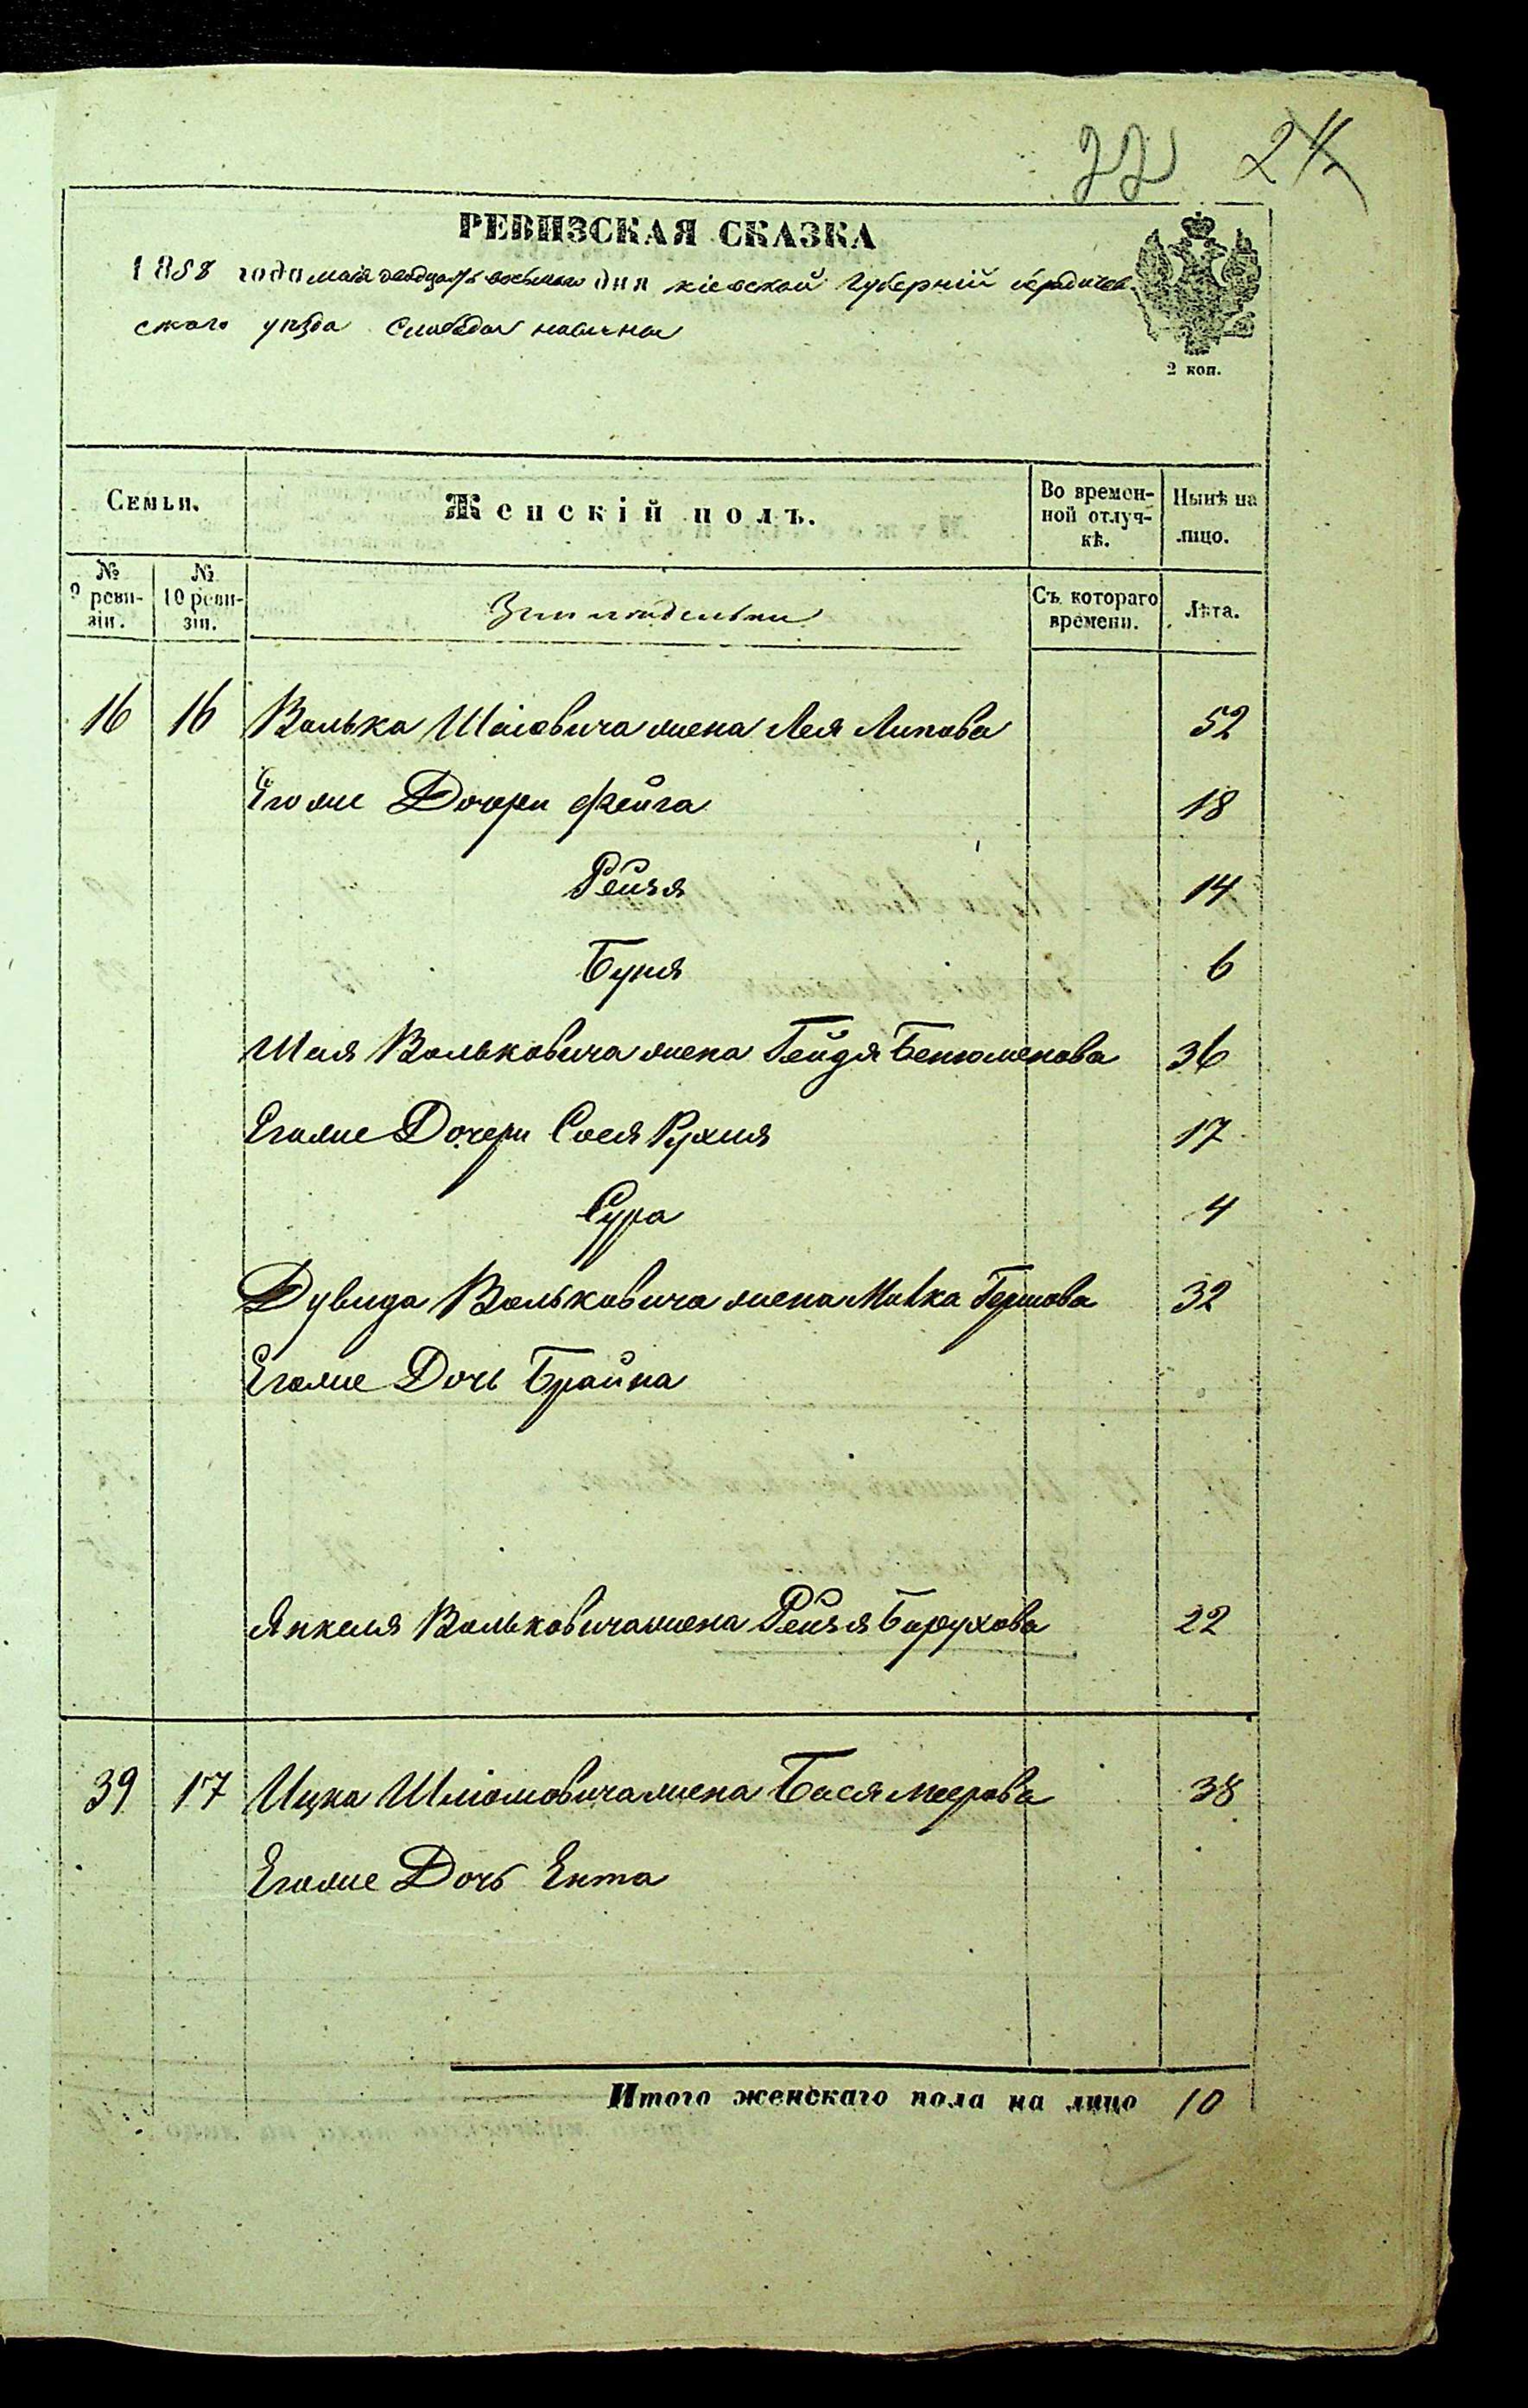 22 24
РЕВИЗСКАЯ СКАЗКА
1858 года мая двадцать восьмого дня кіевской губерніи бердичев-
скаго уезда Слобода
2 коп.
Семьи. Женскій полъ. Во времен- Нынѣ на
ной отлуч- лицо.
кѣ.
№ №
9 реви- 10 реви- Съ котораго Лѣта.
зіи. зіи. времени.
16 16 Волька Шаіовича жена Лея Липова 52
Егоже Дочери Фейга 18
Рейзя 14
Буня 6
Шая Вольковича жена Гейдя Бенюменова 36
Егоже Дочери Сося Рухля 17
Сура 4
Дувида Вольковича жена Малка Гершова 32
Егоже Дочь Брайна
Янкеля Вольковича жена Рейзя Борухова 22
39 17 Ицка Шліомовича жена Бася Меерова 38
Егоже Дочь Ента
Итого женскаго пола на лицо 10